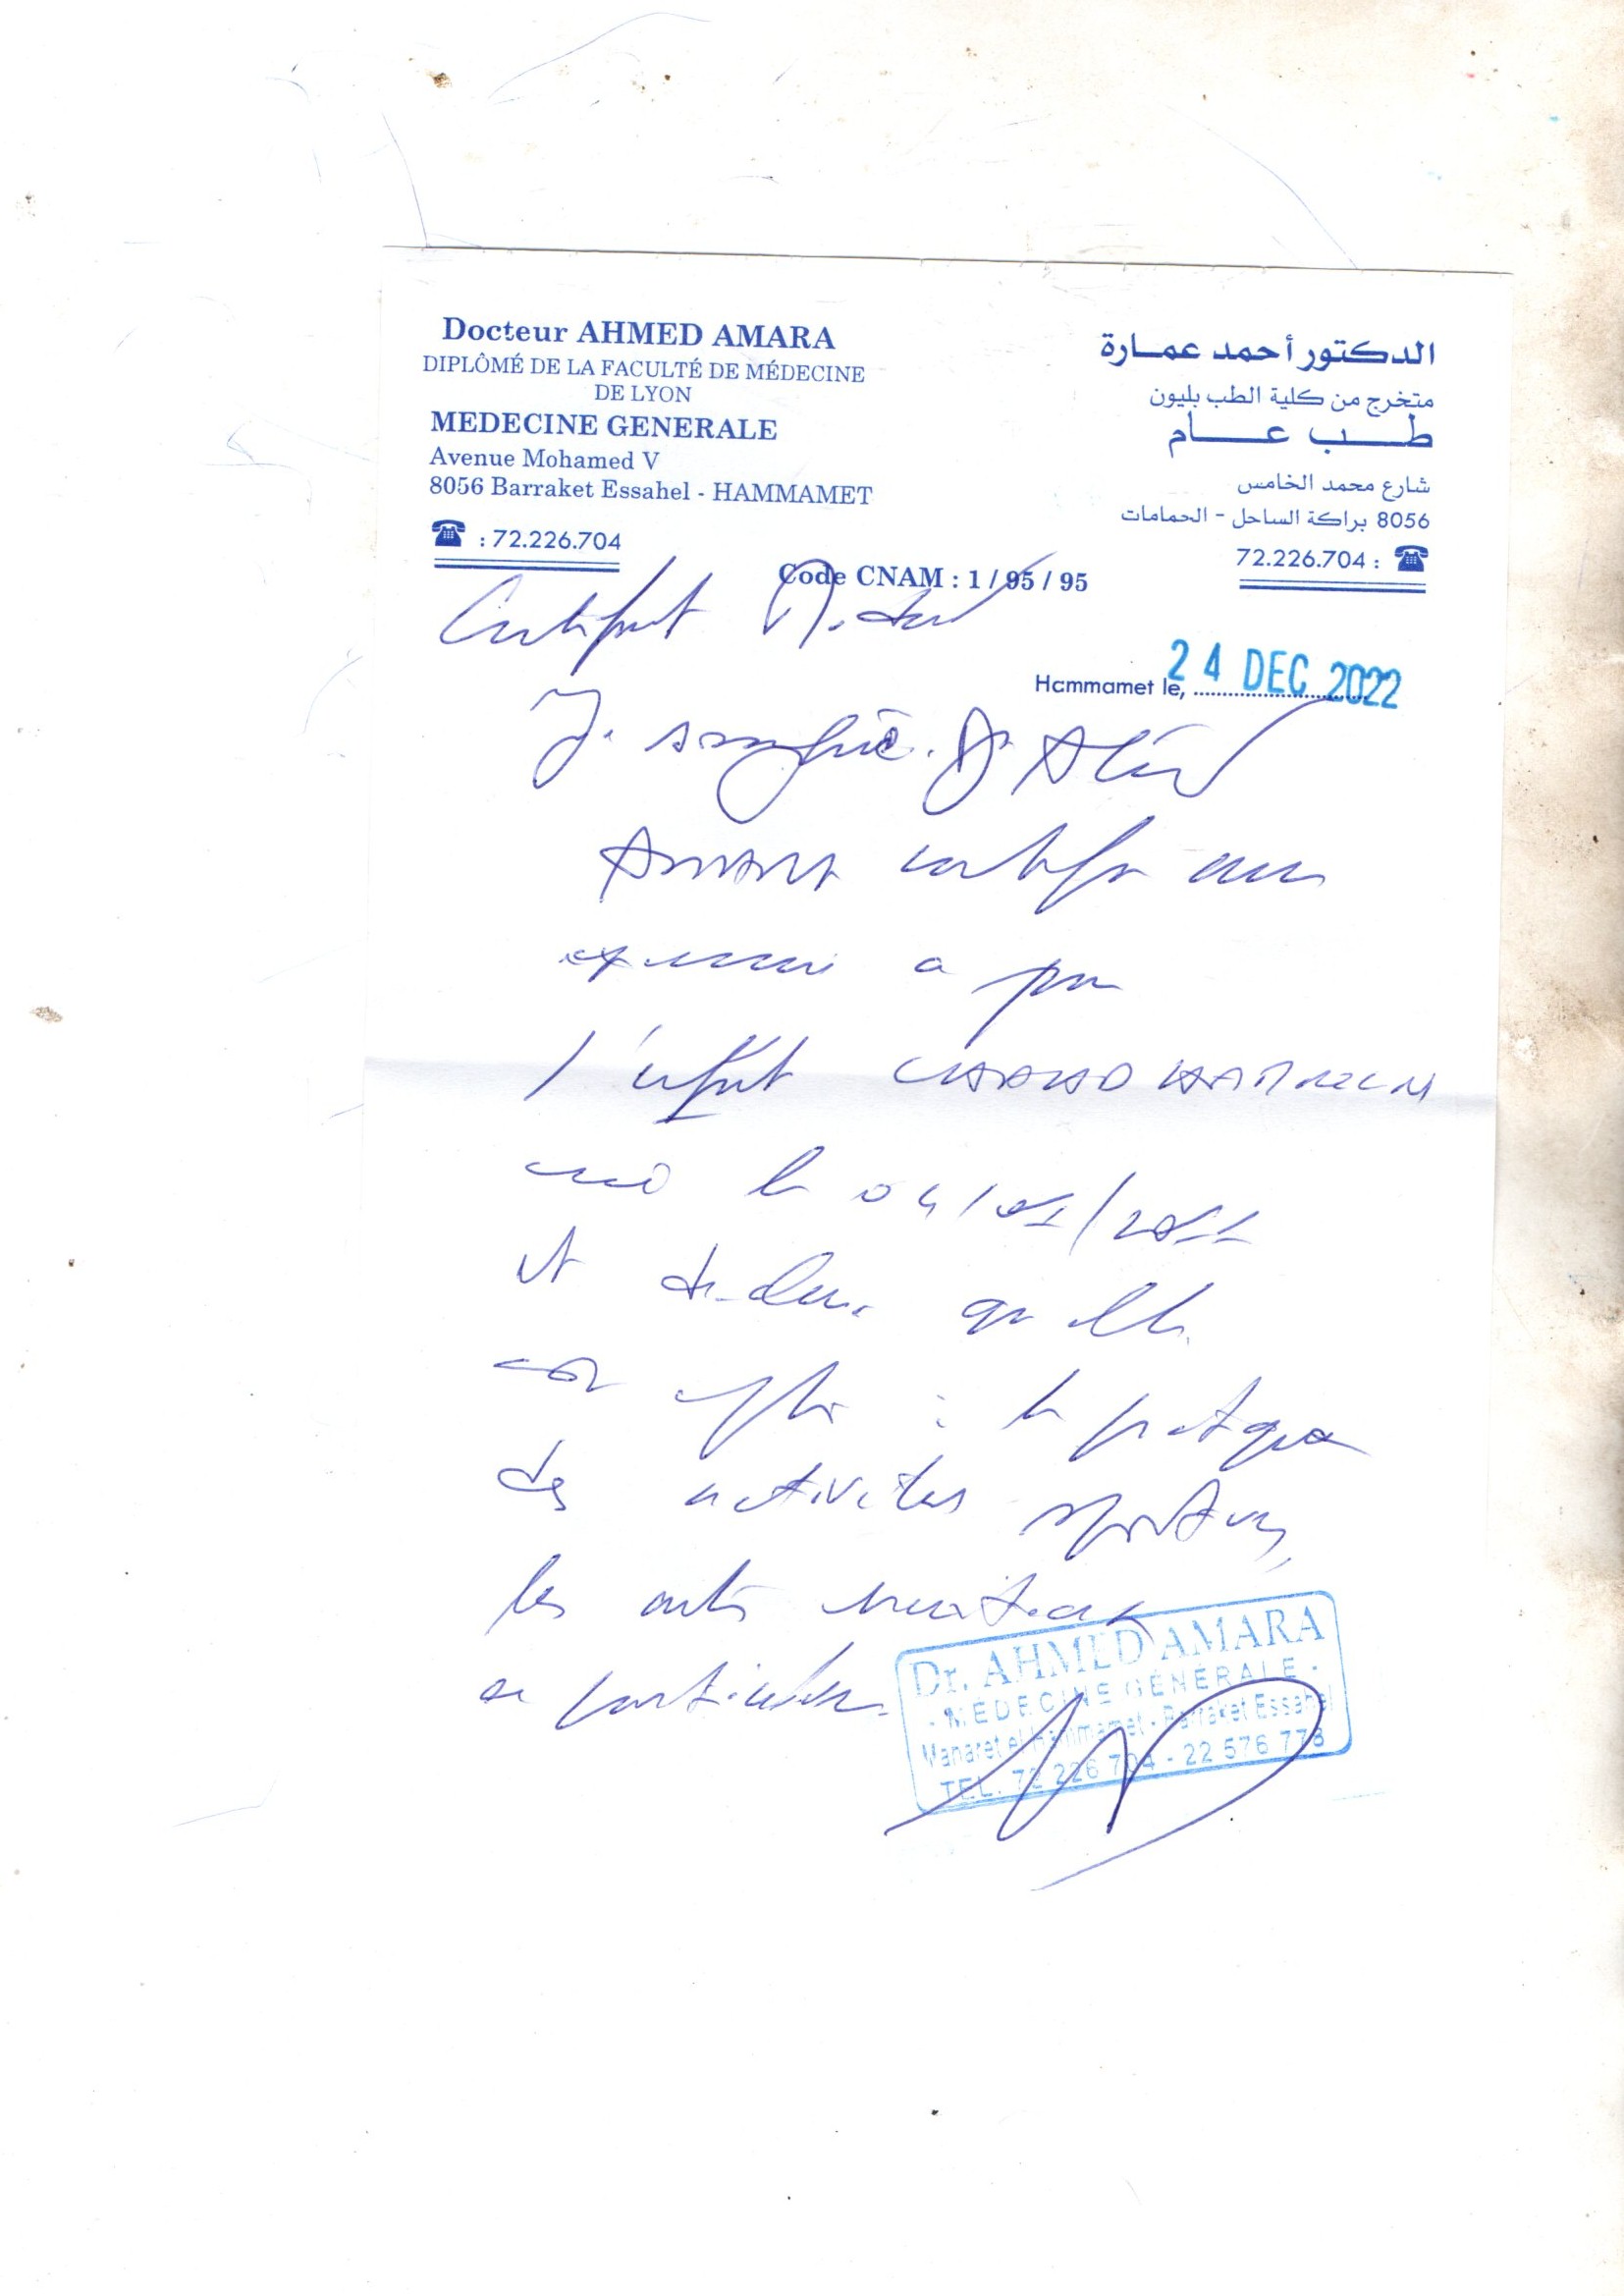 Docteur AHMED AMARA
DIPLÔMÉ DE LA FACULTÉ DE MÉDECINE
DE LYON
MEDECINE GENERALE
Avenue Mohamed V
8056 Barraket Essahel - HAMMAMET
: 72.226.704
الدكتور أحمد عمارة
متخرج من كلية الطب بليون
طب عام
شارع محمد الخامس
8056 براكة الساحل - الحمامات
72.226.704 :
Code CNAM : 1 / 95 / 95
Certificat Médical
Hammamet le, 24 DEC 2022
Je soussigné. Dr Ahmed
AMARA certifie avoir
examiné ce jour
l'enfant
né le 04/01/2011
et déclare qu'elle
est apte à la pratique
des activités sportives,
les arts martiaux
en particulier.
Dr. AHMED AMARA
- MÉDECINE GÉNÉRALE -
Manaret el Hammamet - Barraket Essahel
TEL. 72 226 704 - 22 576 778